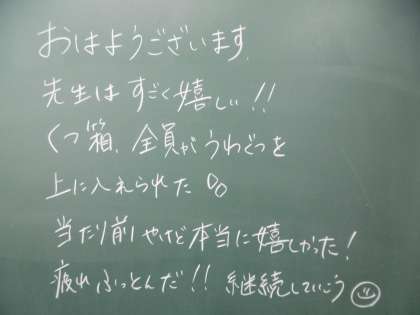 おはようございます。
先生はすごく嬉しい!!
くつ箱、全員がうわぐつを
上に入れられた。
当たり前やけど本当に嬉しかった!
疲れふっとんだ!! 継続していこう